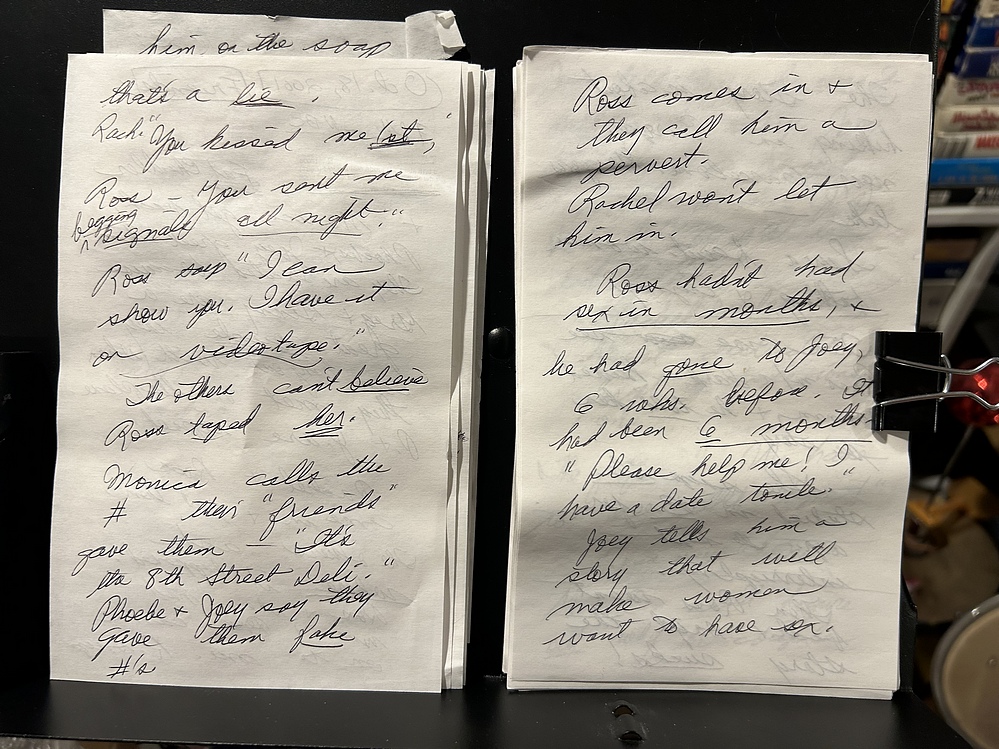 him, on the soap
that's a lie.
Rach. "You kissed me 1st,"
Ross - You sent me
begging
signals all night."
Ross says "I can
show you. I have it
on videotape."
The others can't believe
Ross taped her.
Monica calls the
# their "friends"
gave them - "It's
its 8th Street Deli."
Phoebe & Joey say they
gave them fake
#'s
Ross comes in &
they call him a
pervert.
Rachel won't let
him in.
Ross hadn't had
sex in months, &
he had gone to Joey,
6 wks. before. It
had been 6 months.
"Please help me! I
have a date tonite."
Joey tells him a
story that will
make women
want to have sex.